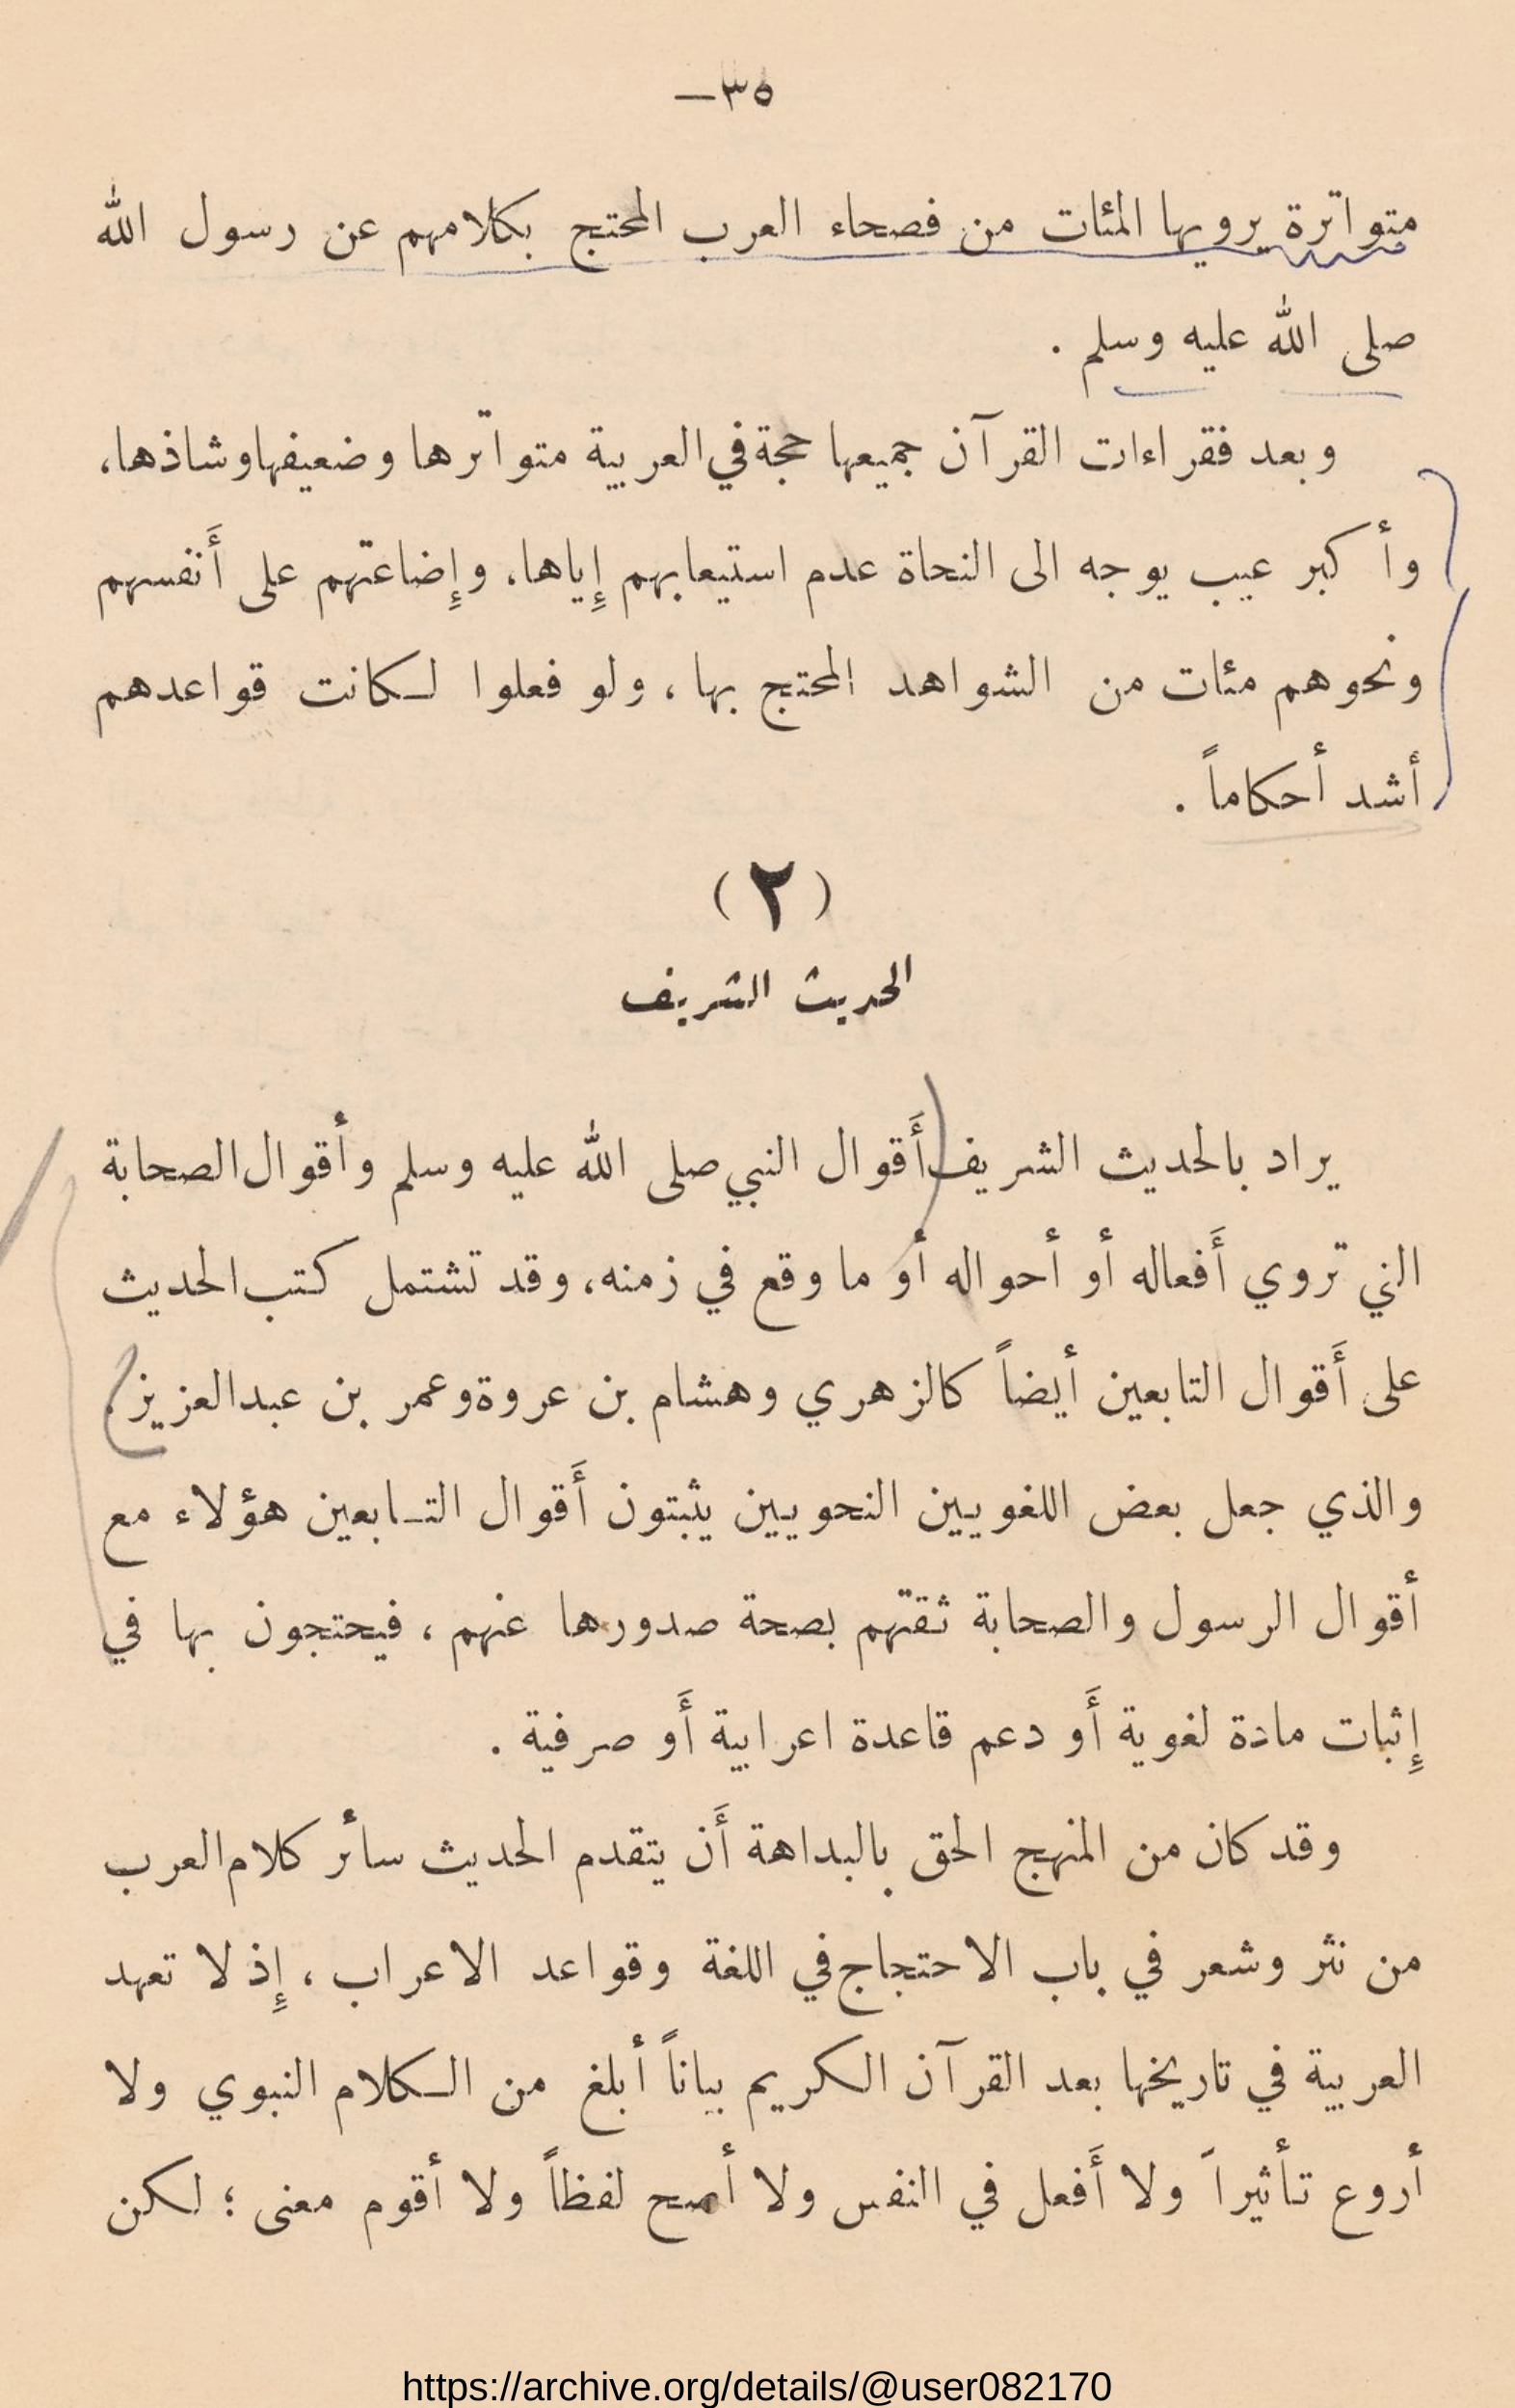 ٣٥—
متواترة يرويها المئات من فصحاء العرب المحتج بكلامهم عن رسول الله
صلى الله عليه وسلم .
وبعد فقراءات القرآن جميعها حجة في العربية متواترها وضعيفها وشاذها،
وأكبر عيب يوجه الى النحاة عدم استيعابهم إِياها، وإِضاعتهم على أَنفسهم
ونحوهم مئات من الشواهد المحتج بها ، ولو فعلوا لكانت قواعدهم
أشد أحكاماً .
( ٢ )
الحديث الشريف
يراد بالحديث الشريف أَقوال النبي صلى الله عليه وسلم وأقوال الصحابة
التي تروي أَفعاله أو أحواله أو ما وقع في زمنه، وقد تشتمل كتب الحديث
على أَقوال التابعين أيضاً كالزهري وهشام بن عروة وعمر بن عبد العزيز،
والذي جعل بعض اللغويين النحويين يثبتون أَقوال التـابعين هؤلاء مع
أقوال الرسول والصحابة ثقتهم بصحة صدورها عنهم ، فيحتجون بها في
إِثبات مادة لغوية أَو دعم قاعدة اعرابية أَو صرفية .
وقد كان من المنهج الحق بالبداهة أَن يتقدم الحديث سائر كلام العرب
من نثر وشعر في باب الاحتجاج في اللغة وقواعد الاعراب ، إِذ لا تعهد
العربية في تاريخها بعد القرآن الكريم بياناً أبلغ من الكلام النبوي ولا
أروع تأثيراً ولا أَفعل في النفس ولا أصح لفظاً ولا أقوم معنى ؛ لكن
https://archive.org/details/@user082170